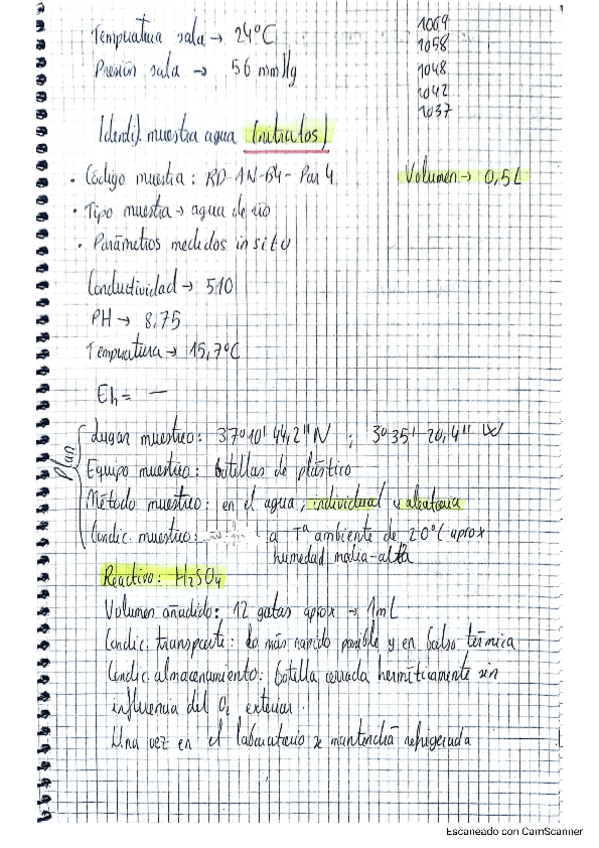 Temperatura sala → 24°C
Presión sala → 56 mmHg
1069
1058
1048
1042
1037
Identif. muestra agua (nitratos)
• Código muestra: RD-AN-B4-Par 4
Volumen → 0,5L
• Tipo muestra → agua de río
• Parámetros medidos in situ
Conductividad → 510
PH → 8,75
Temperatura → 15,7°C
Eh = —
Plan
Lugar muestreo: 37°10' 44,2" N ; 3° 35' 20,4" W
Equipo muestreo: botellas de plástico
Método muestreo: en el agua, individual y aleatoria
Condic. muestreo: a Tª ambiente de 20°C aprox
humedad media-alta
Reactivo: H₂SO₄
Volumen añadido: 12 gotas aprox → 1mL
Condic. transporte: lo más rápido posible y en bolsa térmica
Condic. almacenamiento: botella cerrada herméticamente sin
influencia del O₂ exterior.
Una vez en el laboratorio se mantendrá refrigerada
Escaneado con CamScanner